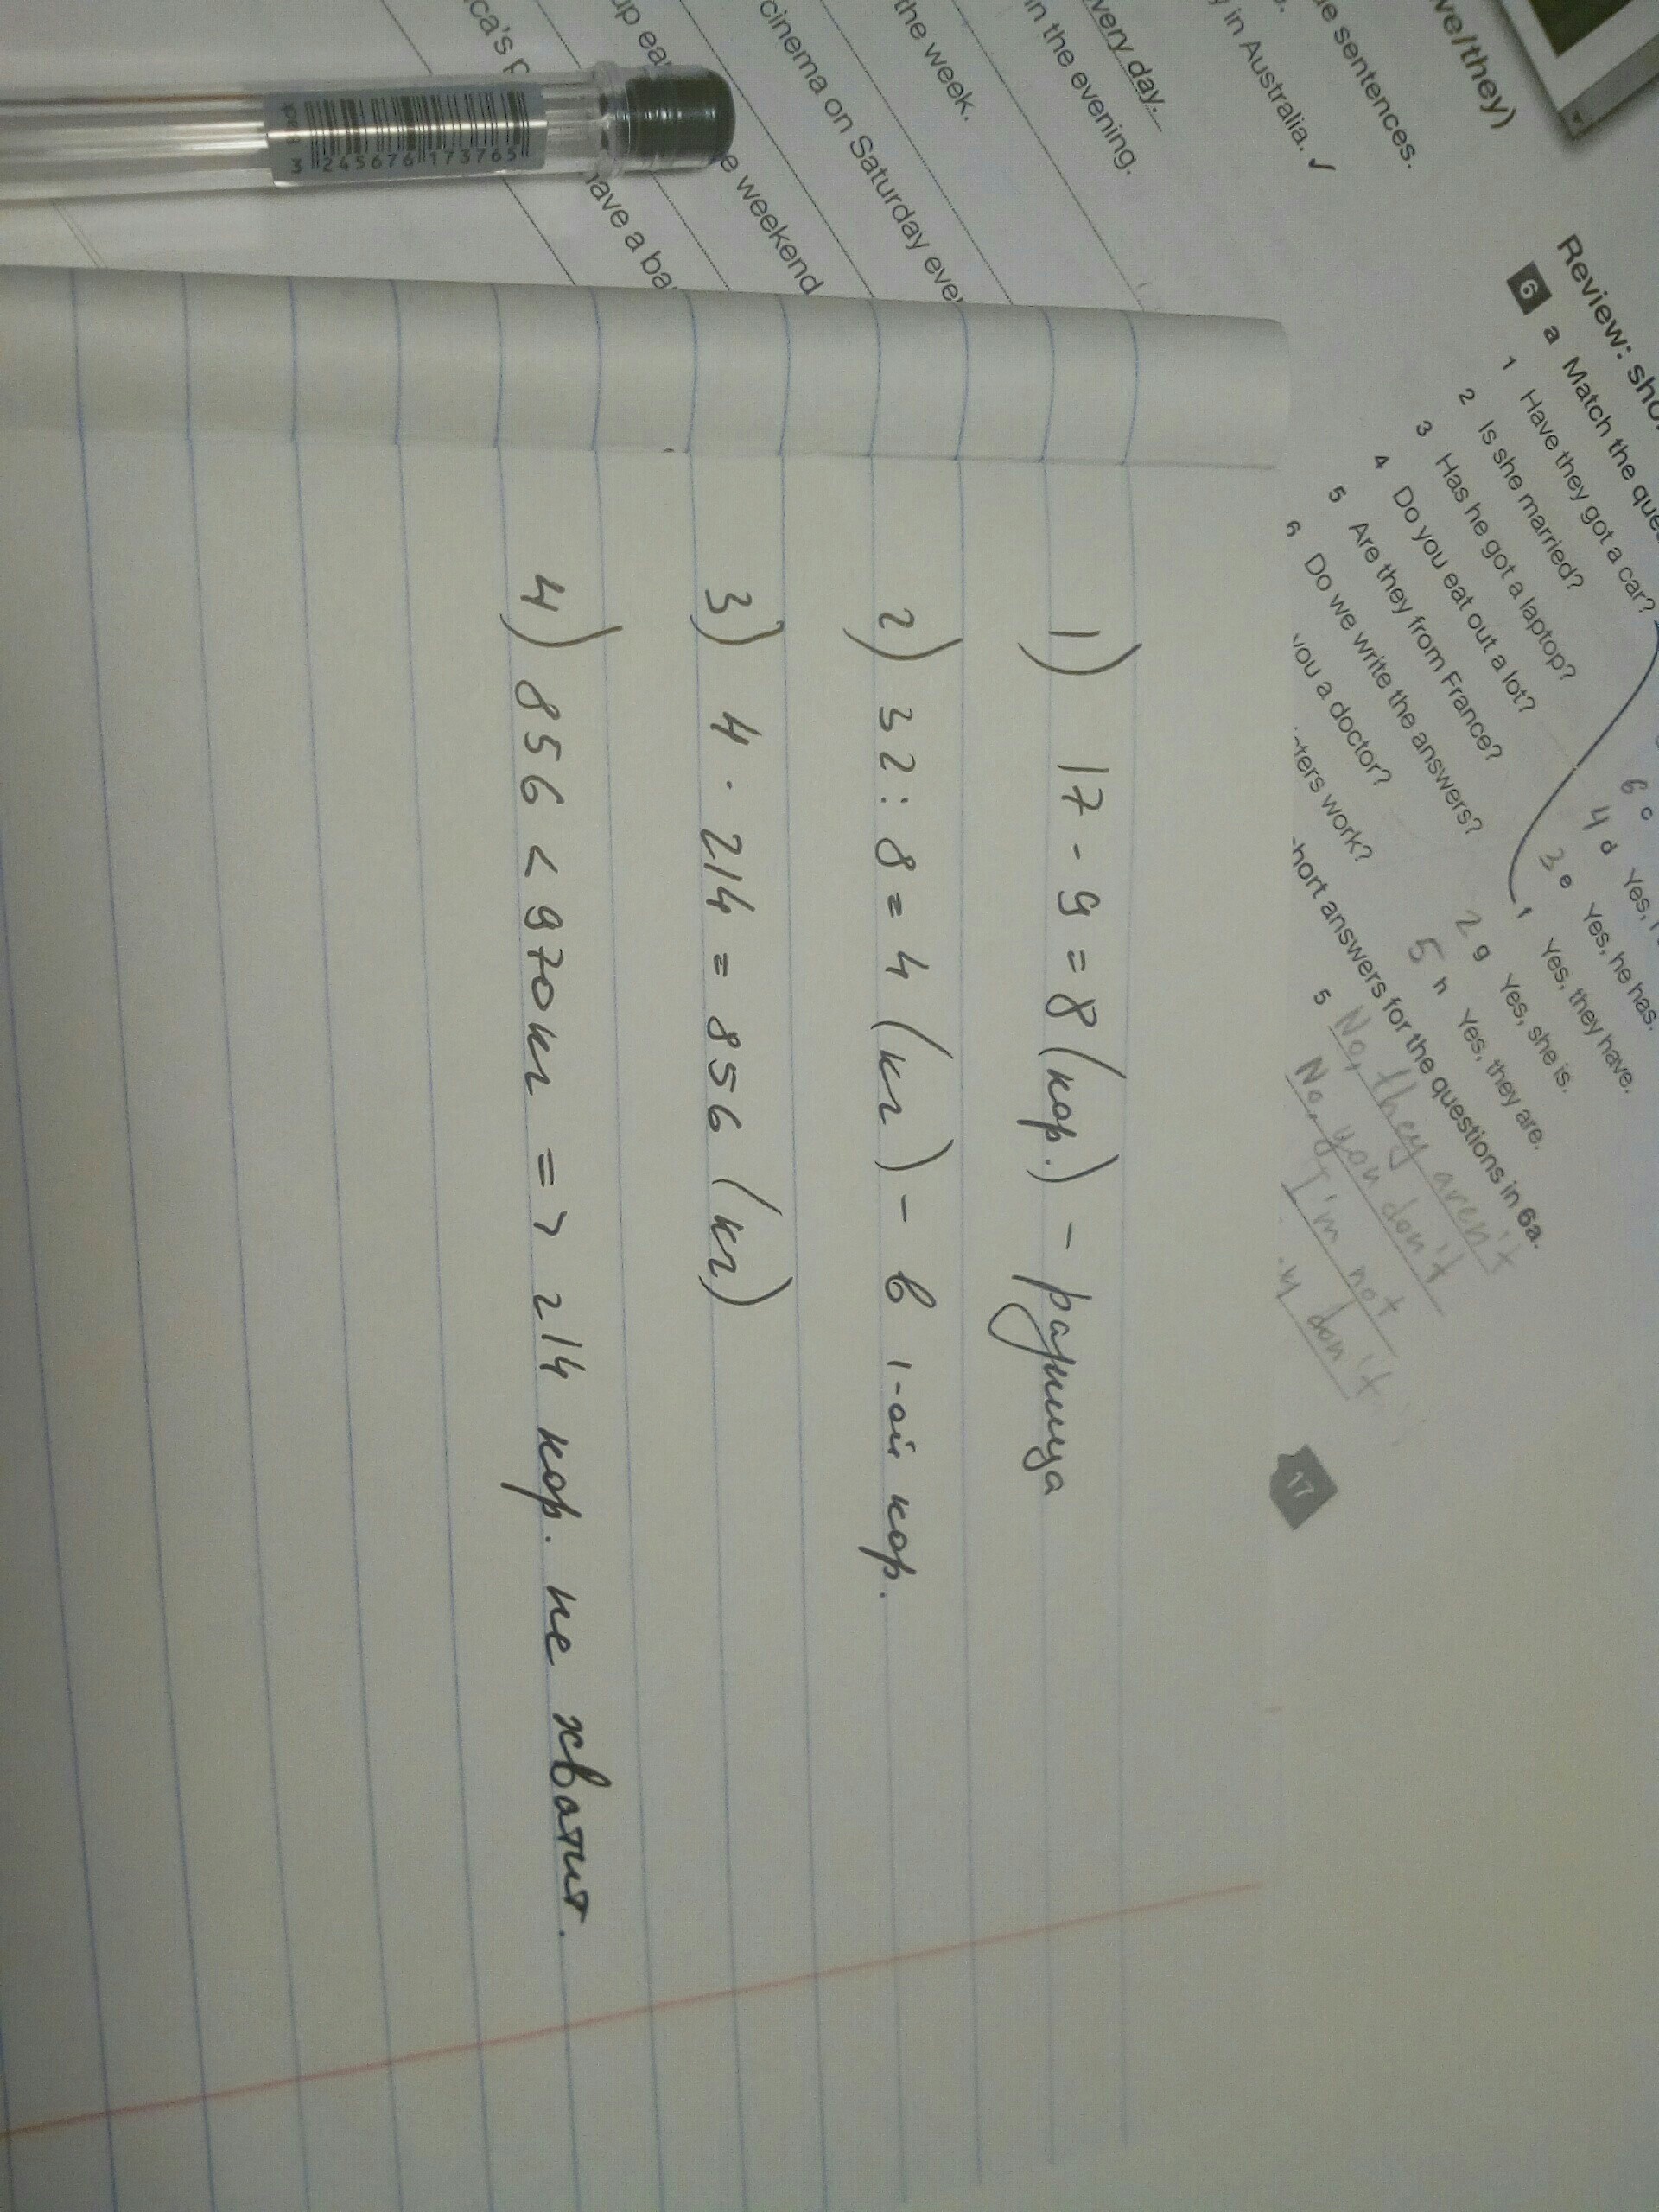 1) 17 - 9 = 8 (кор.) – разница
2) 32 : 8 = 4 (кг) – в 1-ой кор.
3) 4 · 214 = 856 (кг)
4) 856 < 970кг => 214 кор. не хватит.
ve/they)
sentences.
in Australia. ✓
very day.
in the evening.
the week.
cinema on Saturday
e weekend
have a
3 245676 173765
Review:
6 a Match the
1 Have they got a car?
2 Is she married?
3 Has he got a laptop?
4 Do you eat out a lot?
5 Are they from France?
6 Do we write the answers?
you a doctor?
work?
6 c
4 d Yes,
3 e Yes, he has.
f Yes, they have.
2 g Yes, she is.
5 h Yes, they are.
short answers for the questions in 6a.
5 No, they aren't
No, you don't
I'm not
don't
17